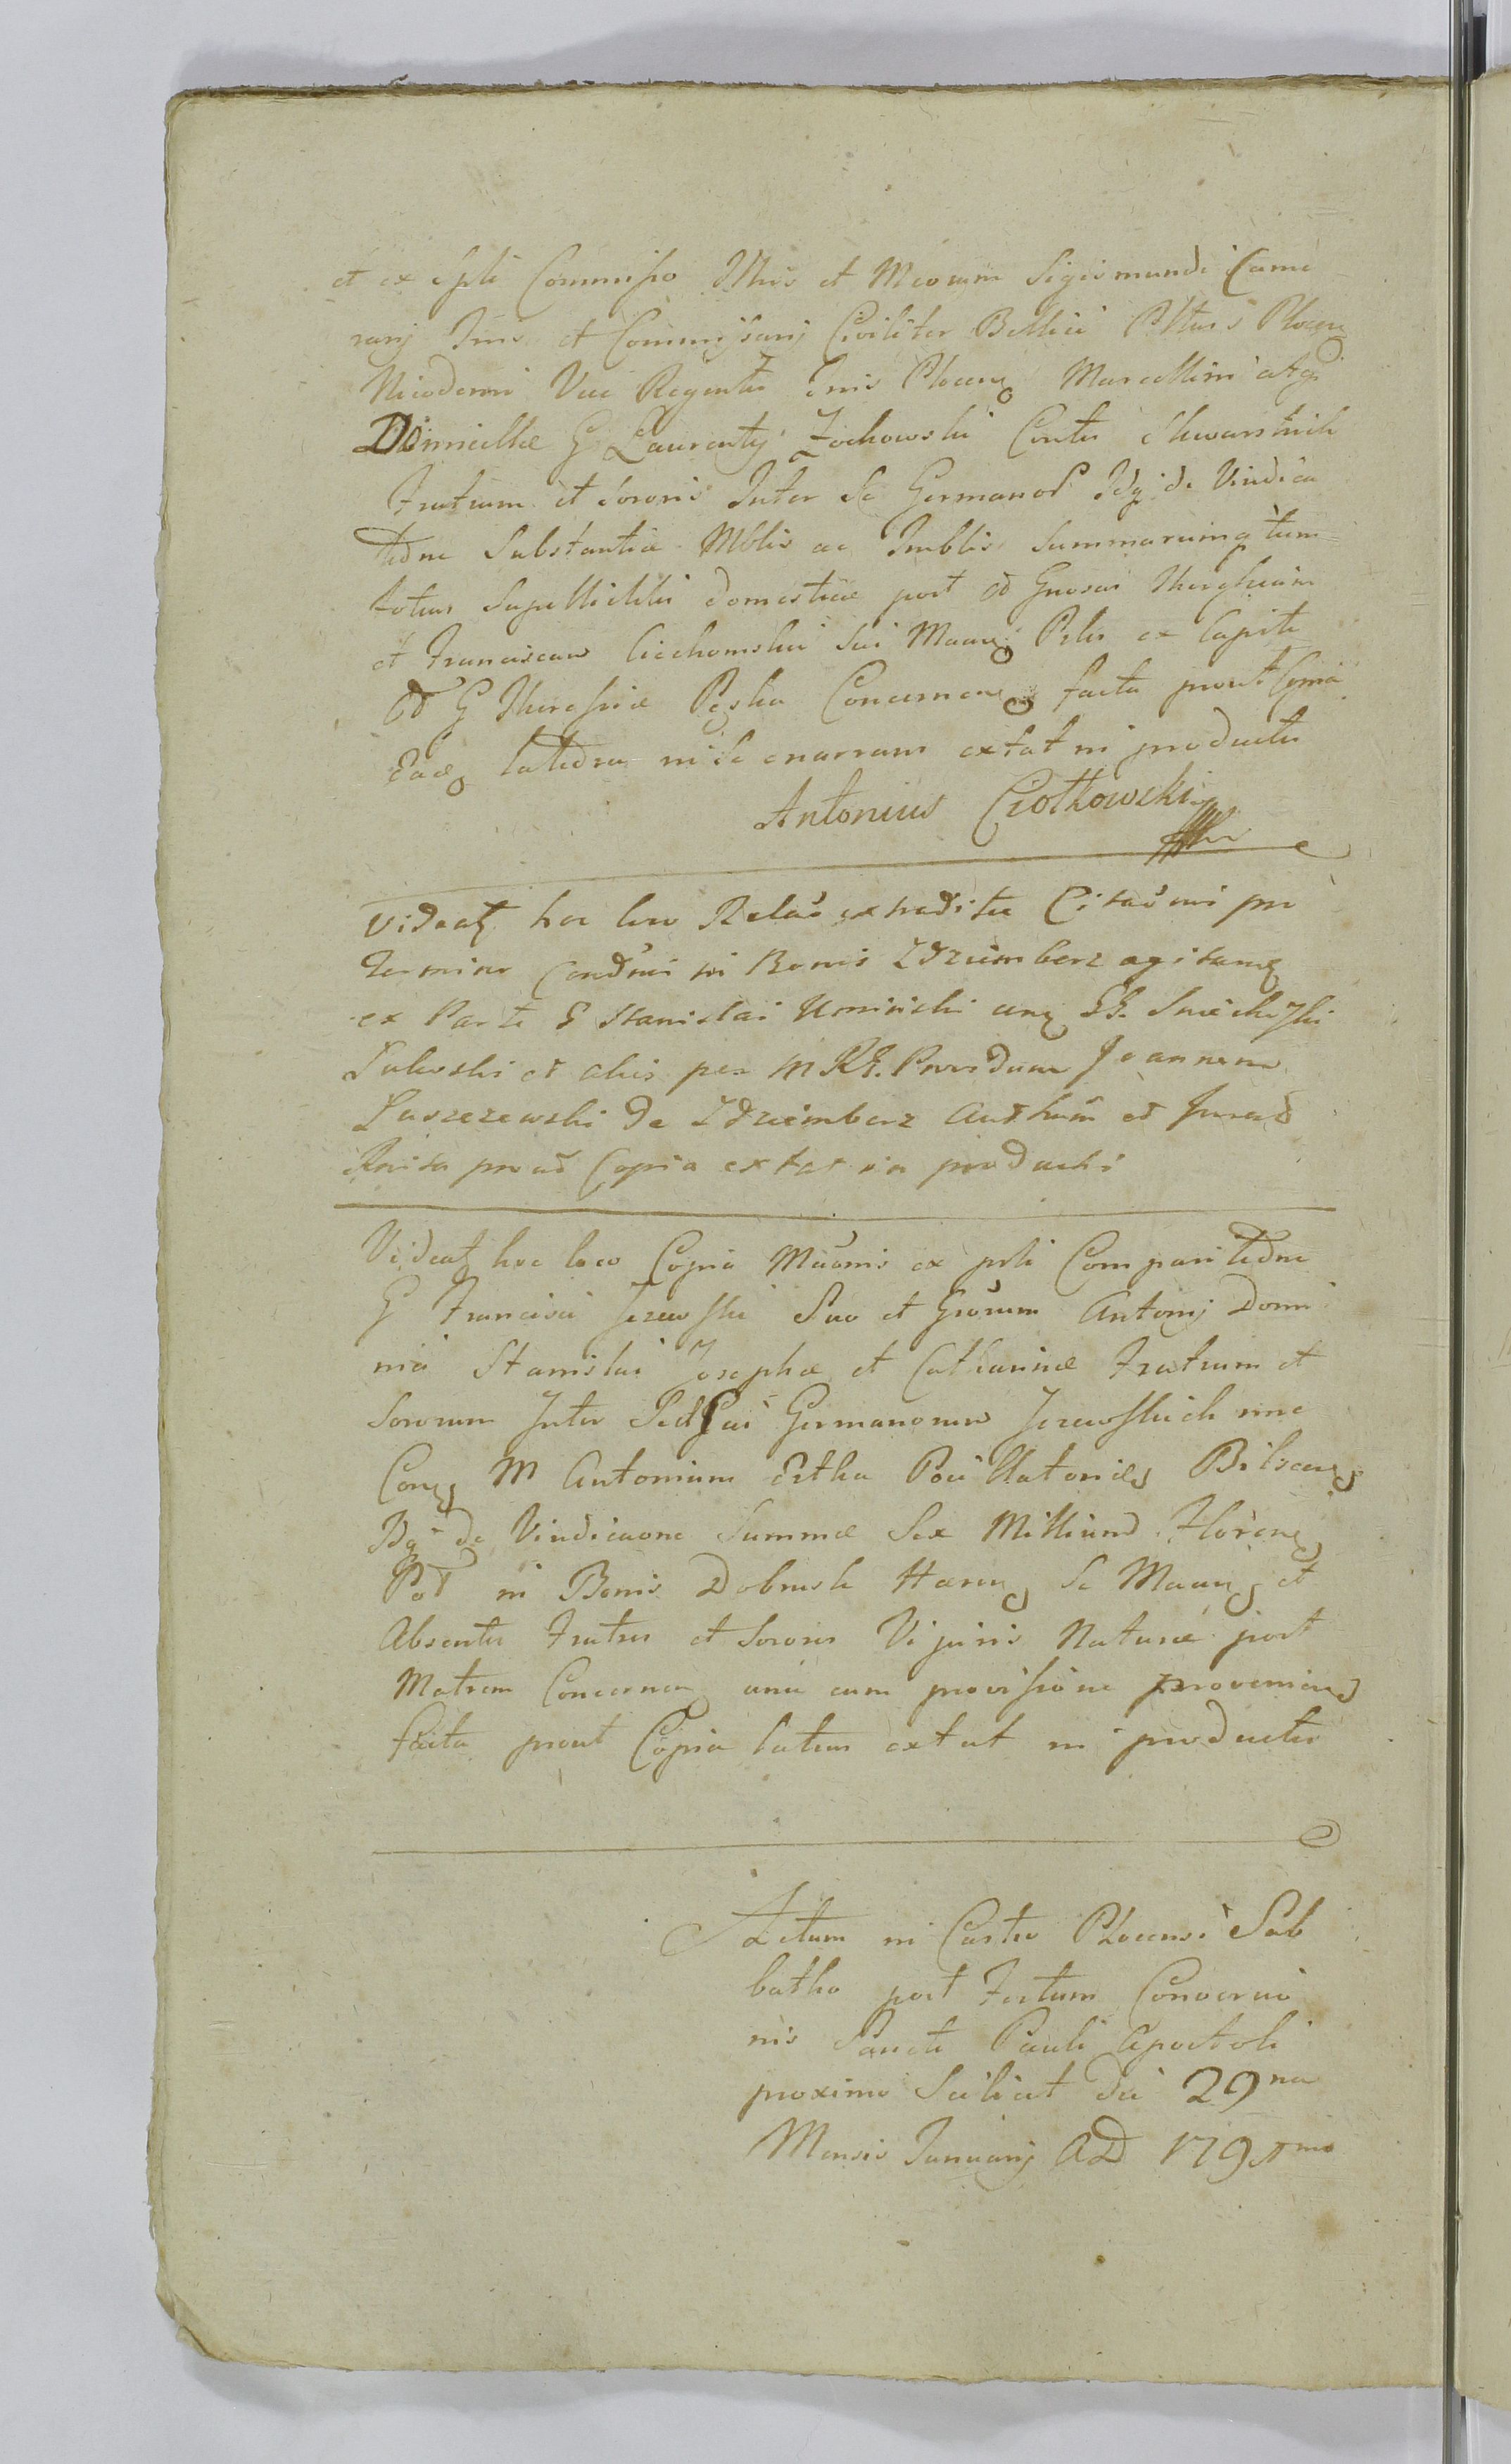 et ex Spli Commisso Mtris et Meorum Sigismundi Came
rarij Trris et Commissarij Civiliter Bellici Pltus Plocen
Nicodemi Vice Regentis Trris Plocen Marcellini atq
Domicellae G Laurentij Zochowski Contis
Fratrum et Sororis Inter Se Germanor Idq de Vindica
tione Substantiae Mblis ac Imblis Summarumq tum
totius Supellictilis domesticae post od Gnosos
et Franciscam Ciechomski sui Manen Pctes ex Capite
Od G Theresiae Concernen facta prout Copia
Eade latiora in se enarrans extat in productis
Antonius Ciotkowski
Videat hoc loco Relao extraditae Citaoni pro
Termino Condni in Bonis Zdziemborz agitan
ex Parte G Stanislai Uminski cum GG.
et aliis per M RG. Providum Joannem
Laszczewski de Zdziemborz Authum et Jurat
Rnita prout Copia extat in producti
Videat hoc loco Copia Maonis ex prli Comparitione
G Francisci Jezewski Suo et Grosum Antonij Domi
nici Stanislai Josephae et Catharinae Fratrum et
Sororum Inter Germanorum Jezewskich nne
Con M Antonium Poci Bilscen
Idq de Vindicaone Summae Sex Millium Floren
Pol in Bonis Dobrusk Haeren Se Manen et
Absentis Fratris et Sororis Vi juris Naturae post
Matrem Concernen una cum provisione provenien
facta prout Copia latius extat in productis
Actum in Castro Plocensi Sab
batho post Festum Conversio
nis Sancti Pauli Apostoli
proximo Scilicet die 29na
Mensis Januarij AD 1791mo